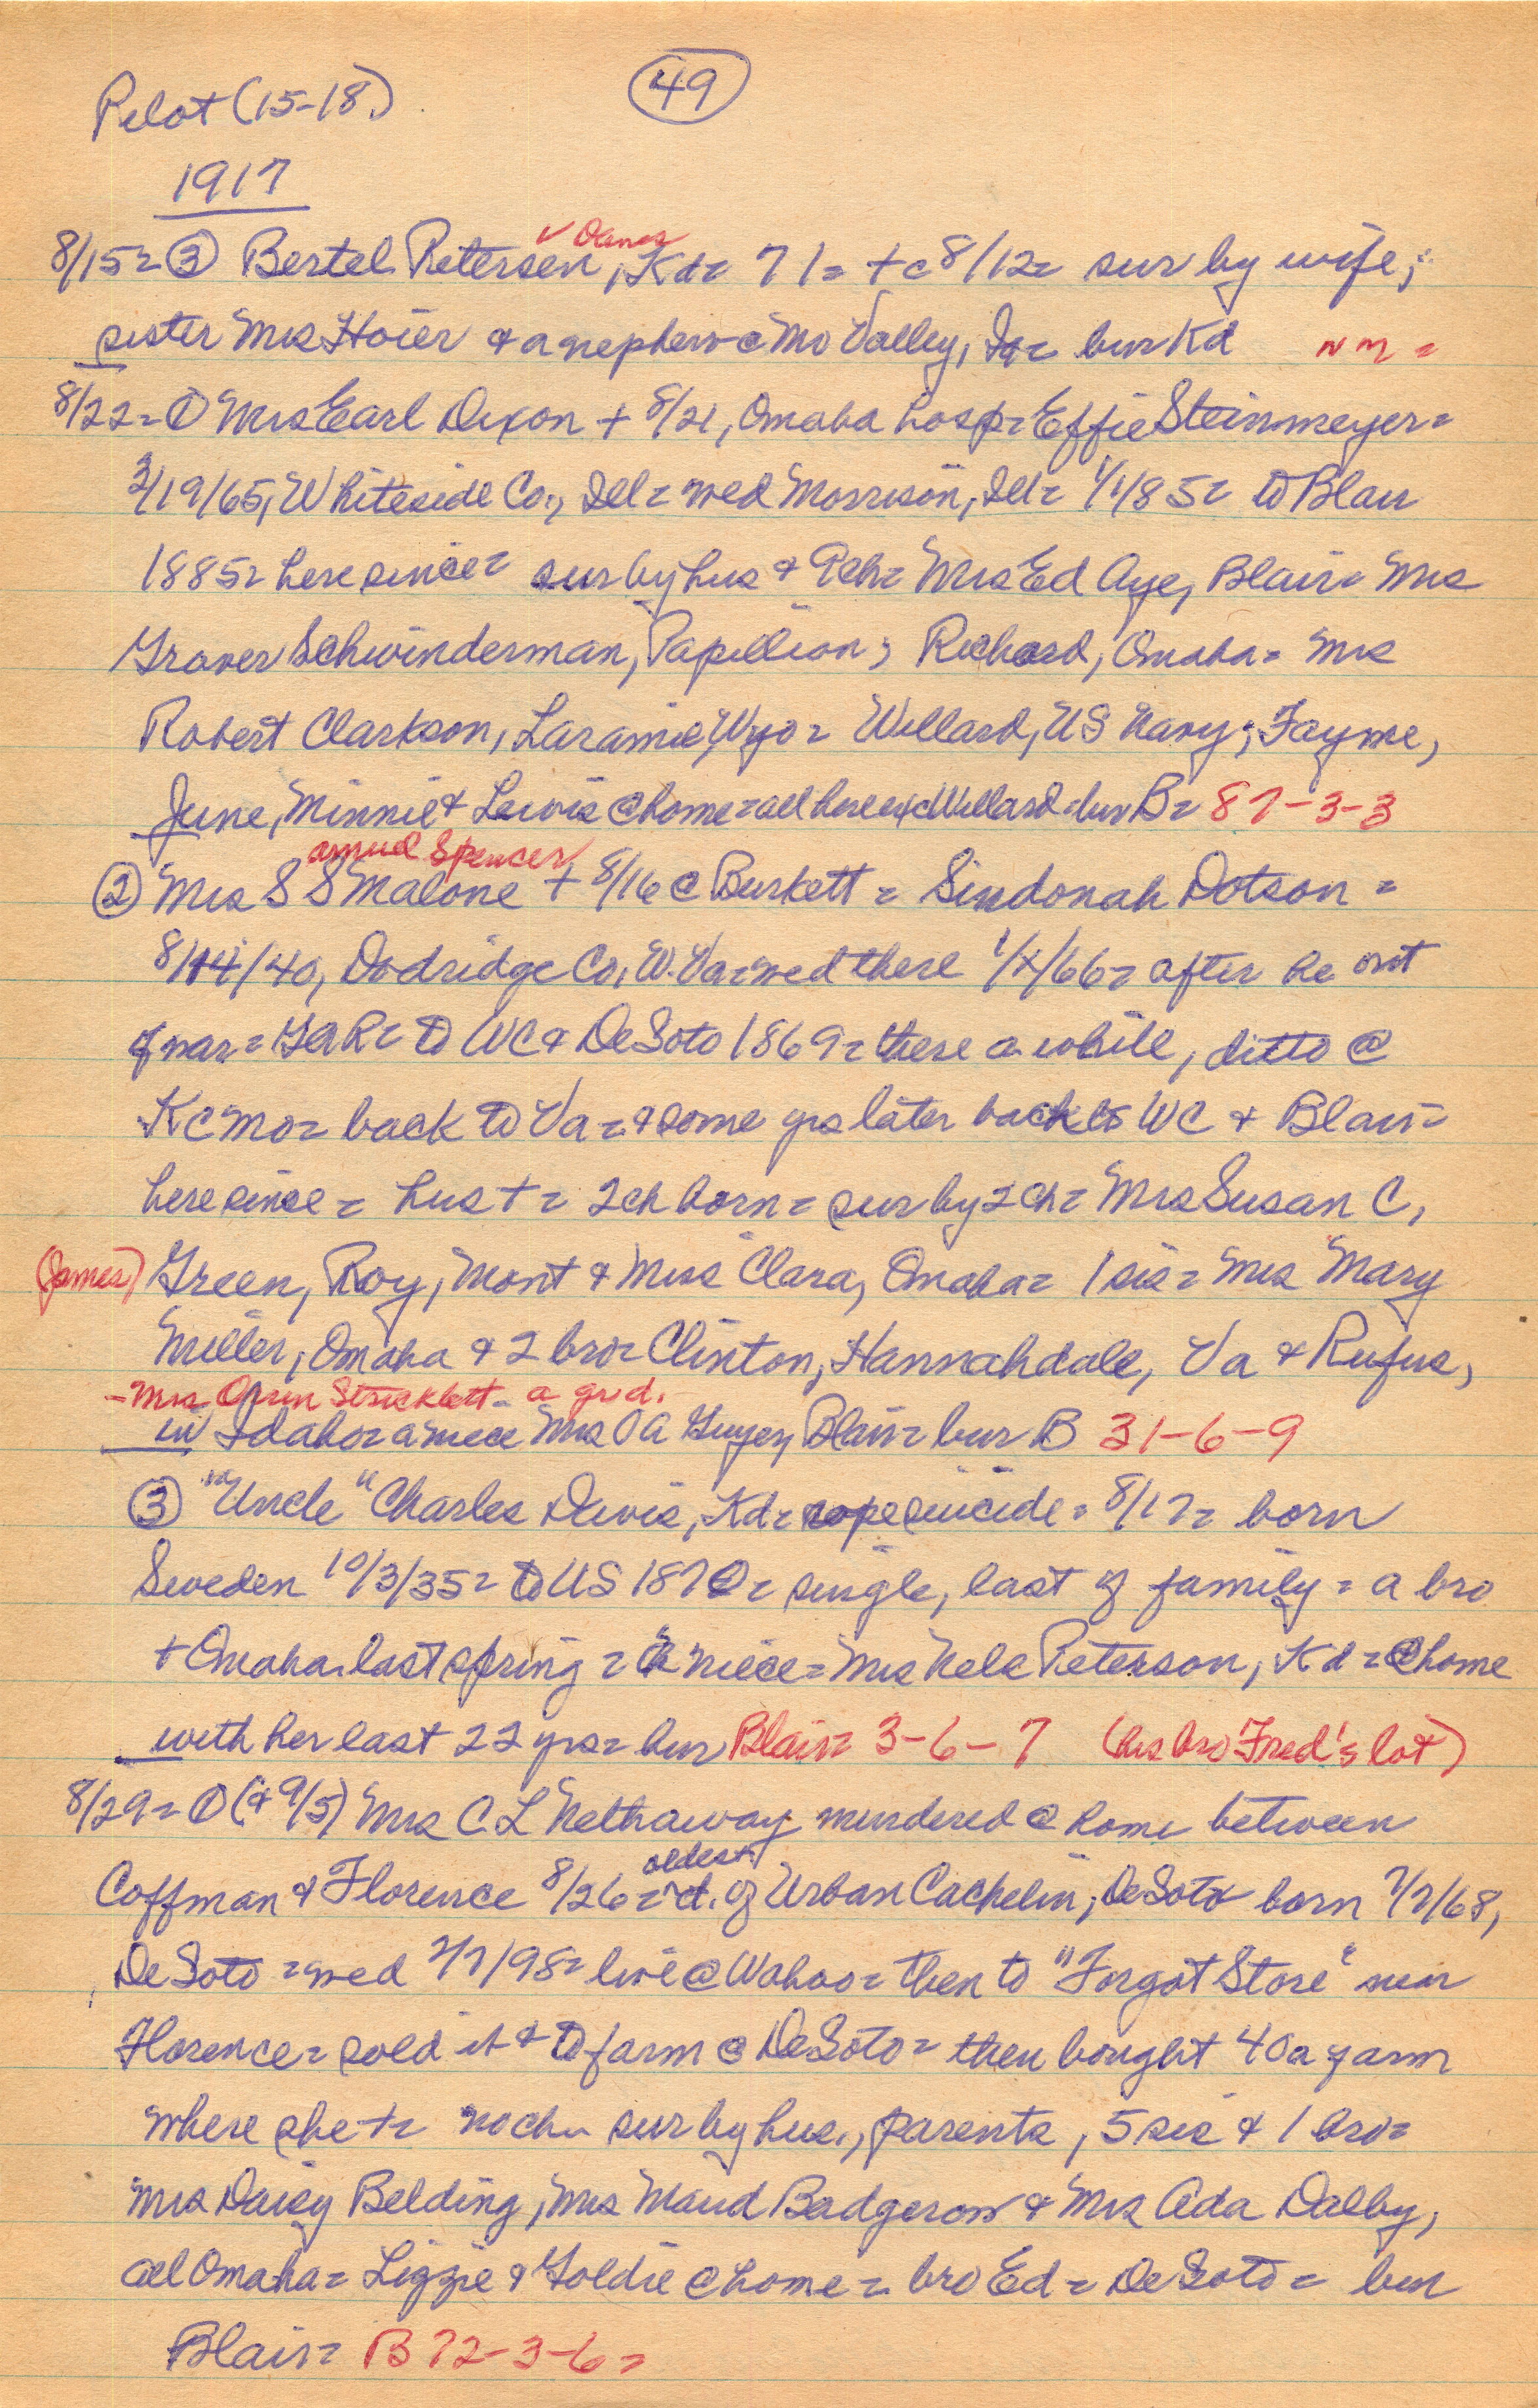 49
Pilot (15-18)
1917
✓ Danes
8/15= ③ Bertel Petersen, Kd= 71= + @ 8/12= sur by wife;
sister Mrs Hoier & a nephew @ Mo Valley, Ia= bur Kd NM =
8/22= ① Mrs Earl Dixon + 8/21, Omaha hosp= Effie Steinmeyer=
3/19/65, Whiteside Co., Ill= wed Morrison, Ill= 1/1/85= to Blair
1885= here since= sur by hus & 9ch= Mrs Ed Aye, Blair= Mrs
Grover Schwinderman, Papillion; Richard, Omaha= Mrs
Robert Clarkson, Laramie, Wyo= Willard, US Navy; Fayme,
June, Minnie & Lewis @ home= all here exc Willard= bur B= 87-3-3
amuel Spencer
② Mrs S S Malone + 8/16 @ Burkett = Sindonah Dotson =
8/14/40, Dodridge Co, W. Va= wed there 1/ /66= after he out
of war= GAR= to WC & DeSoto 1869= there a while, ditto @
KC Mo= back to Va= & some yrs later back to WC & Blair=
here since= hus += 2ch born= sur by 2 ch= Mrs Susan C,
(James) Green, Roy, Mont & Miss Clara, Omaha= 1 sis= Mrs Mary
Miller, Omaha & 2 bro= Clinton, Hannahdale, Va & Rufus,
-Mrs Orrin Stricklett- a grd.
in Idaho= a niece Mrs O A Guyer, Blair= bur B 31-6-9
③ "Uncle" Charles Davis, Kd= rope suicide= 8/17= born
Sweden 10/3/35= to US 1870= single, last of family= a bro
+ Omaha last spring= a niece= Mrs Nels Peterson, Kd= @ home
with her last 22 yrs= bur Blair= 3-6-7 (his bro Fred's lot)
8/29= ① (& 9/5) Mrs C L Nethaway murdered @ home between
oldest
Coffman & Florence 8/26= d. of Urban Cachelin, DeSoto born 7/7/68,
DeSoto= wed 2/7/98= live @ Wahoo= then to "Forgot Store" near
Florence= sold it & to farm @ DeSoto= then bought 40a farm
where she += no ch= sur by hus., parents, 5 sis & 1 bro=
Mrs Daisy Belding, Mrs Maud Badgerow & Mrs Ada Dalby,
all Omaha= Lizzie & Goldie @ home= bro Ed= DeSoto= bur
Blair= B 72-3-6=